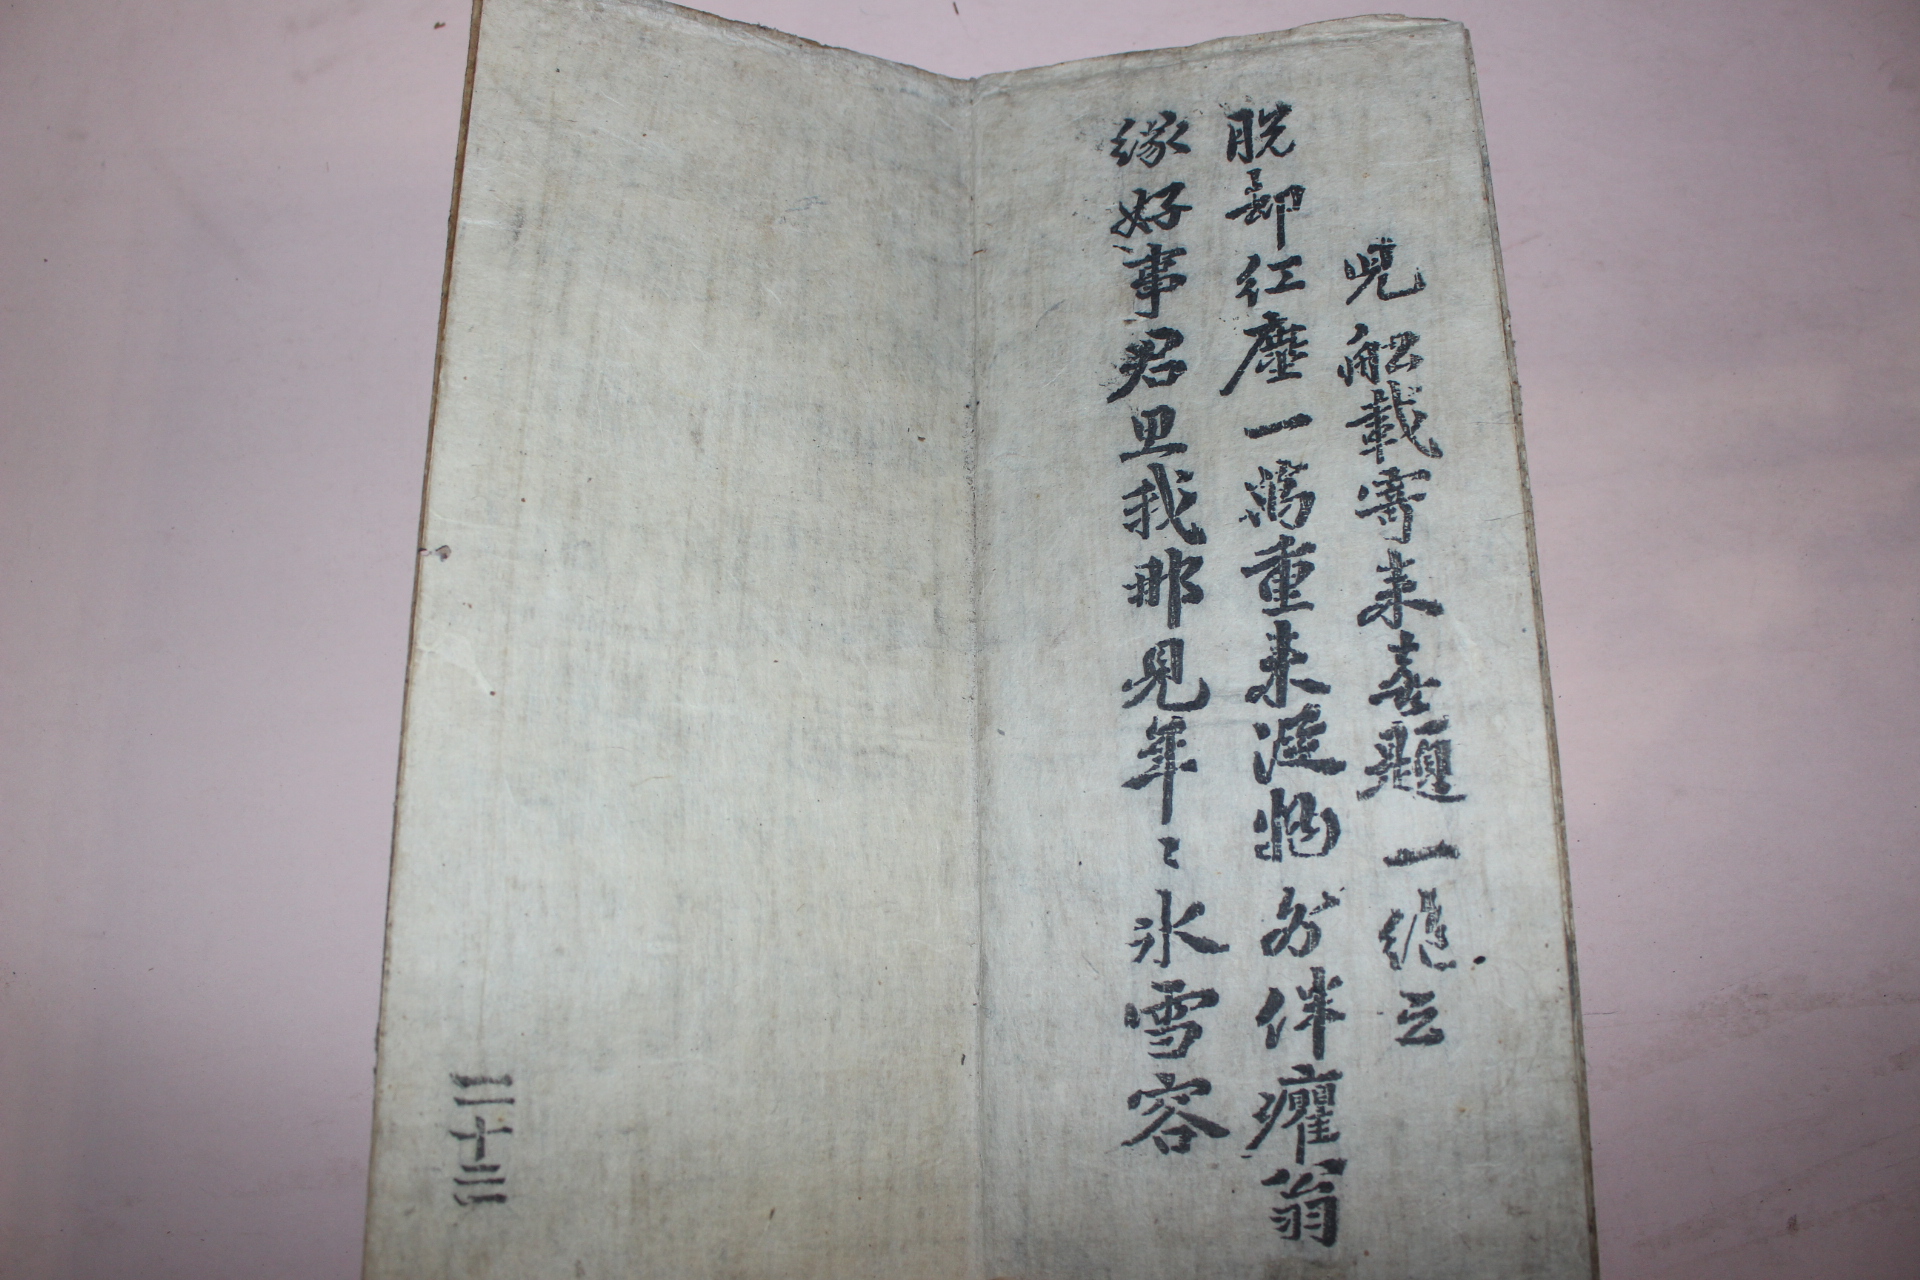 児船載寄来喜題一絶云
脫却紅塵一萬重来從物外伴癯翁
緣好事君思我那見年〻氷雪容
二十三